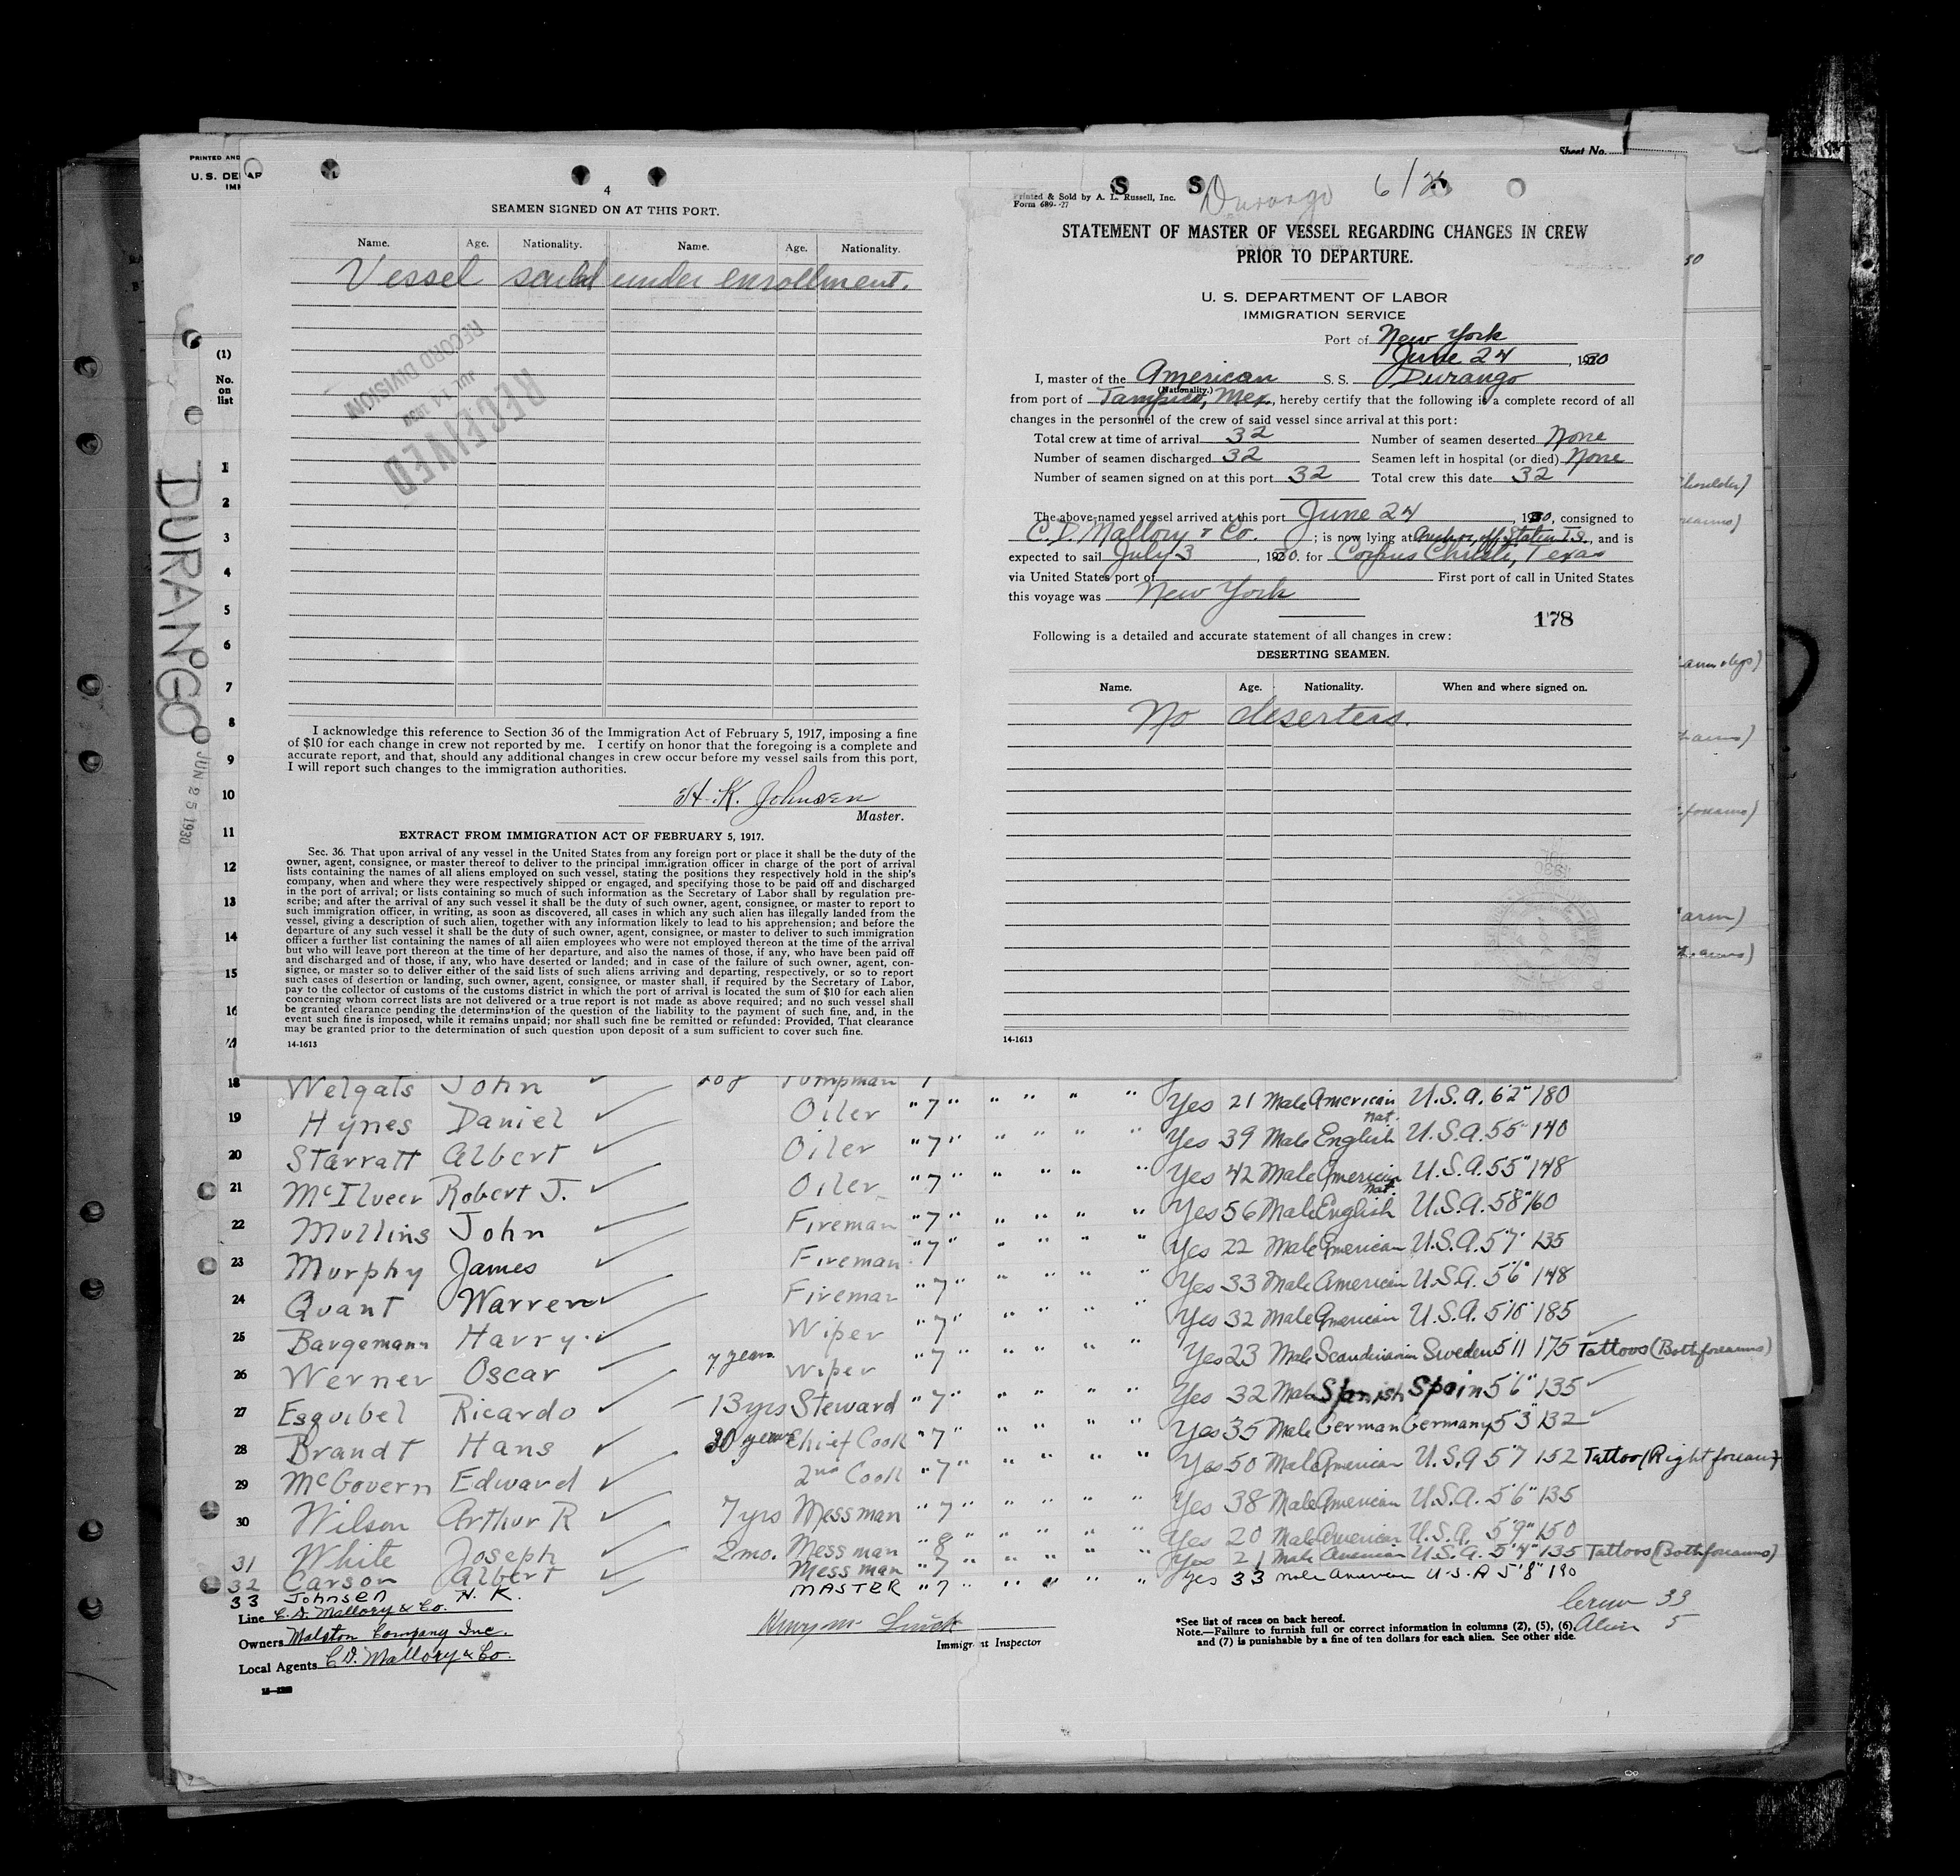 PRINTED AND
U. S. DE
4
SEAMEN SIGNED ON AT THIS PORT.
Name. Age. Nationality. Name. Age. Nationality.
Vessel under enrollment.
RECORD DIVISION
RECEIVED
I acknowledge this reference to Section 36 of the Immigration Act of February 5, 1917, imposing a fine
of $10 for each change in crew not reported by me. I certify on honor that the foregoing is a complete and
accurate report, and that, should any additional changes in crew occur before my vessel sails from this port,
I will report such changes to the immigration authorities.
H. K. Johnsen
Master.
EXTRACT FROM IMMIGRATION ACT OF FEBRUARY 5, 1917.
Sec. 36. That upon arrival of any vessel in the United States from any foreign port or place it shall be the duty of the
owner, agent, consignee, or master thereof to deliver to the principal immigration officer in charge of the port of arrival
lists containing the names of all aliens employed on such vessel, stating the positions they respectively hold in the ship's
company, when and where they were respectively shipped or engaged, and specifying those to be paid off and discharged
in the port of arrival; or lists containing so much of such information as the Secretary of Labor shall by regulation pre-
scribe; and after the arrival of any such vessel it shall be the duty of such owner, agent, consignee, or master to report to
such immigration officer, in writing, as soon as discovered, all cases in which any such alien has illegally landed from the
vessel, giving a description of such alien, together with any information likely to lead to his apprehension; and before the
departure of any such vessel it shall be the duty of such owner, agent, consignee, or master to deliver to such immigration
officer a further list containing the names of all alien employees who were not employed thereon at the time of the arrival
but who will leave port thereon at the time of her departure, and also the names of those, if any, who have been paid off
and discharged and of those, if any, who have deserted or landed; and in case of the failure of such owner, agent, con-
signee, or master so to deliver either of the said lists of such aliens arriving and departing, respectively, or so to report
such cases of desertion or landing, such owner, agent, consignee, or master shall, if required by the Secretary of Labor,
pay to the collector of customs of the customs district in which the port of arrival is located the sum of $10 for each alien
concerning whom correct lists are not delivered or a true report is not made as above required; and no such vessel shall
be granted clearance pending the determination of the question of the liability to the payment of such fine, and, in the
event such fine is imposed, while it remains unpaid; nor shall such fine be remitted or refunded: Provided, That clearance
may be granted prior to the determination of such question upon deposit of a sum sufficient to cover such fine.
14-1613
Sheet No.
Printed & Sold by A. L. Russell, Inc.
Form 689-
Durango
STATEMENT OF MASTER OF VESSEL REGARDING CHANGES IN CREW
PRIOR TO DEPARTURE.
U. S. DEPARTMENT OF LABOR
IMMIGRATION SERVICE
Port of New York
June 24, 1930
I, master of the American S. S. Durango
(Nationality.)
from port of Tampico, Mex., hereby certify that the following is a complete record of all
changes in the personnel of the crew of said vessel since arrival at this port:
Total crew at time of arrival 32 Number of seamen deserted None
Number of seamen discharged 32 Seamen left in hospital (or died) None
Number of seamen signed on at this port 32 Total crew this date 32
The above-named vessel arrived at this port June 24, 1930, consigned to
C. D. Mallory & Co. ; is now lying at Anchor, off Staten Is., and is
expected to sail July 3, 1930. for Corpus Christi, Texas
via United States port of First port of call in United States
this voyage was New York
178
Following is a detailed and accurate statement of all changes in crew:
DESERTING SEAMEN.
Name. Age. Nationality. When and where signed on.
No deserters.
14-1613
DURANGO
JUN 25 1930
(1)
No.
on
list
1
2
3
4
5
6
7
8
9
10
11
12
13
14
15
16
18 Welgats John Pumpman
19 Hynes Daniel Oiler " 7 " " " " " Yes 21 Male American U.S.A. 6'2" 180
20 Starratt Albert Oiler " 7 " " " " " Yes 39 Male Nat. English U.S.A. 5'5" 140
21 McIlveer Robert J. Oiler " 7 " " " " " Yes 42 Male American U.S.A. 5'5" 148
22 Mullins John Fireman " 7 " " " " " Yes 56 Male Nat. English U.S.A. 5'8" 160
23 Murphy James Fireman " 7 " " " " " Yes 22 Male American U.S.A. 5'7" 135
24 Quant Warren Fireman " 7 " " " " " Yes 33 Male American U.S.A. 5'6" 148
25 Bargemann Harry Wiper " 7 " " " " " Yes 32 Male American U.S.A. 5'10" 185
26 Werner Oscar 7 years Wiper " 7 " " " " " Yes 23 Male Scandinavian Sweden 5'11 175 Tattoos (Both forearms)
27 Esquibel Ricardo 13 yrs Steward " 7 " " " " " Yes 32 Male Spanish Spain 5'6" 135
28 Brandt Hans 30 years Chief Cook " 7 " " " " " Yes 35 Male German Germany 5'3" 132
29 McGovern Edward 2nd Cook " 7 " " " " " Yes 50 Male American U.S.A 5'7 152 Tattoo (Right forearm)
30 Wilson Arthur R 7 yrs Messman " 7 " " " " " Yes 38 Male American U.S.A. 5'6" 135
31 White Joseph 2 mo. Messman " 8 " " " " Yes 20 Male American U.S.A. 5'9" 150
32 Carson Albert Messman " 7 " " " " " Yes 21 Male American U.S.A. 5'4" 135 Tattoos (Both forearms)
33 Johnsen H. K. MASTER " 7 " " " " " Yes 33 male American U.S.A 5'8" 190
Line C. D. Mallory & Co.
Owners Malston Company Inc.
Local Agents C. D. Mallory & Co.
Immigrant Inspector
*See list of races on back hereof.
Note.—Failure to furnish full or correct information in columns (2), (5), (6),
and (7) is punishable by a fine of ten dollars for each alien. See other side.
Crew 33
Alien 5